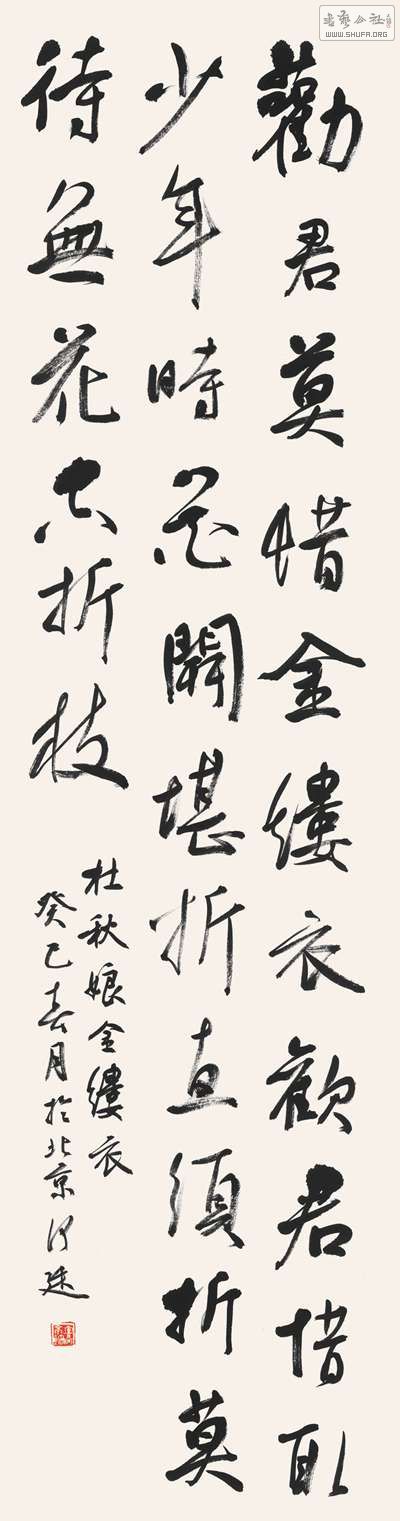 書藝公社
WWW.SHUFA.ORG
勸君莫惜金縷衣勸君惜取
少年時花開堪折直須折莫
待無花空折枝
杜秋娘金縷衣
癸巳春月於北京